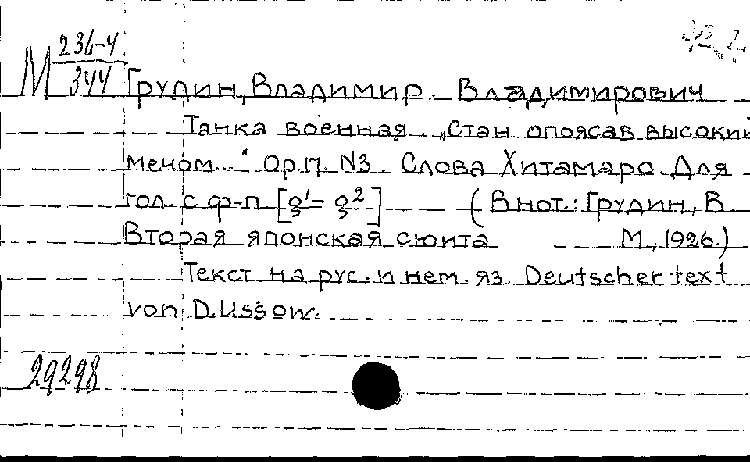 М 236-4
344
Грудин, Владимир Владимирович
Танка военная „Стан опоясав высокий
мечом..." Ор.П. N3 Слова Хитамаро Для
гол. с ф-п.
(В нот.: Грудин, В.
Вторая японская сюита М., 1926.)
Текст на рус. и нем. яз. Deutscher text
von D. Ussow.
29298